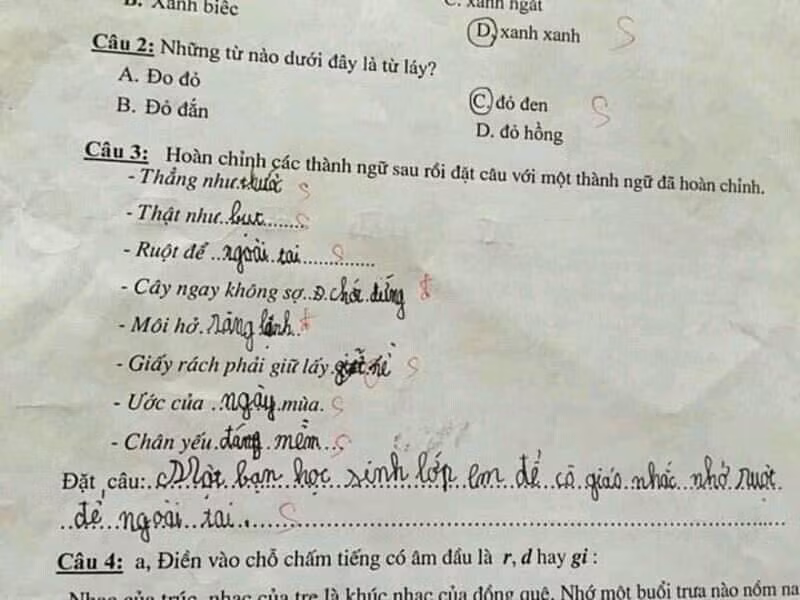 B. Xanh biếc
C. xanh ngát
D. xanh xanh S
Câu 2: Những từ nào dưới đây là từ láy?
A. Đo đỏ
B. Đỏ đắn
C. đỏ đen S
D. đỏ hồng
Câu 3: Hoàn chỉnh các thành ngữ sau rồi đặt câu với một thành ngữ đã hoàn chỉnh.
- Thẳng như thước S
- Thật như..bụt........ S
- Ruột để ..ngoài tai.............. S
- Cây ngay không sợ..Đ.chết đứng đ
- Môi hở.răng lạnh.. đ
- Giấy rách phải giữ lấy. S
- Ước của ..ngày.mùa. S
- Chân yếu.đáng mềm.. S
Đặt câu:..Một bạn học sinh lớp em để cô giáo nhắc nhở ruột
để ngoài tai...S
Câu 4: a, Điền vào chỗ chấm tiếng có âm đầu là r, d hay gi :
Nhạc của trúc, nhạc của tre là khúc nhạc của đồng quê. Nhớ một buổi trưa nào nồm na